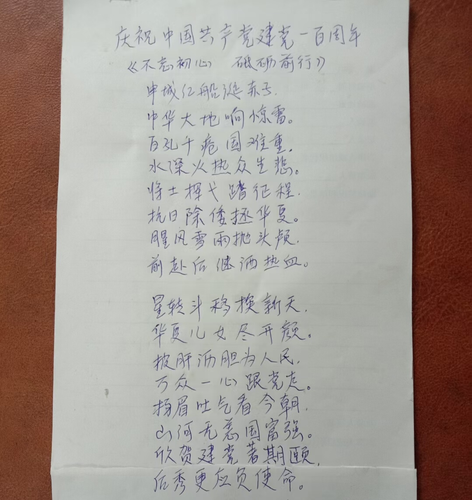 庆祝中国共产党建党一百周年
《不忘初心 砥砺前行》
申城红船诞赤子.
中华大地响惊雷。
百孔千疮国难重.
水深火热众生悲。
将士挥戈踏征程.
抗日除倭拯华夏。
腥风雪雨抛头颅.
前赴后继洒热血。
星转斗移换新天.
华夏儿女尽开颜。
披肝沥胆为人民.
万众一心跟党走。
扬眉吐气看今朝.
山河无恙国富强。
欣贺建党著期颐.
后秀更应负使命。